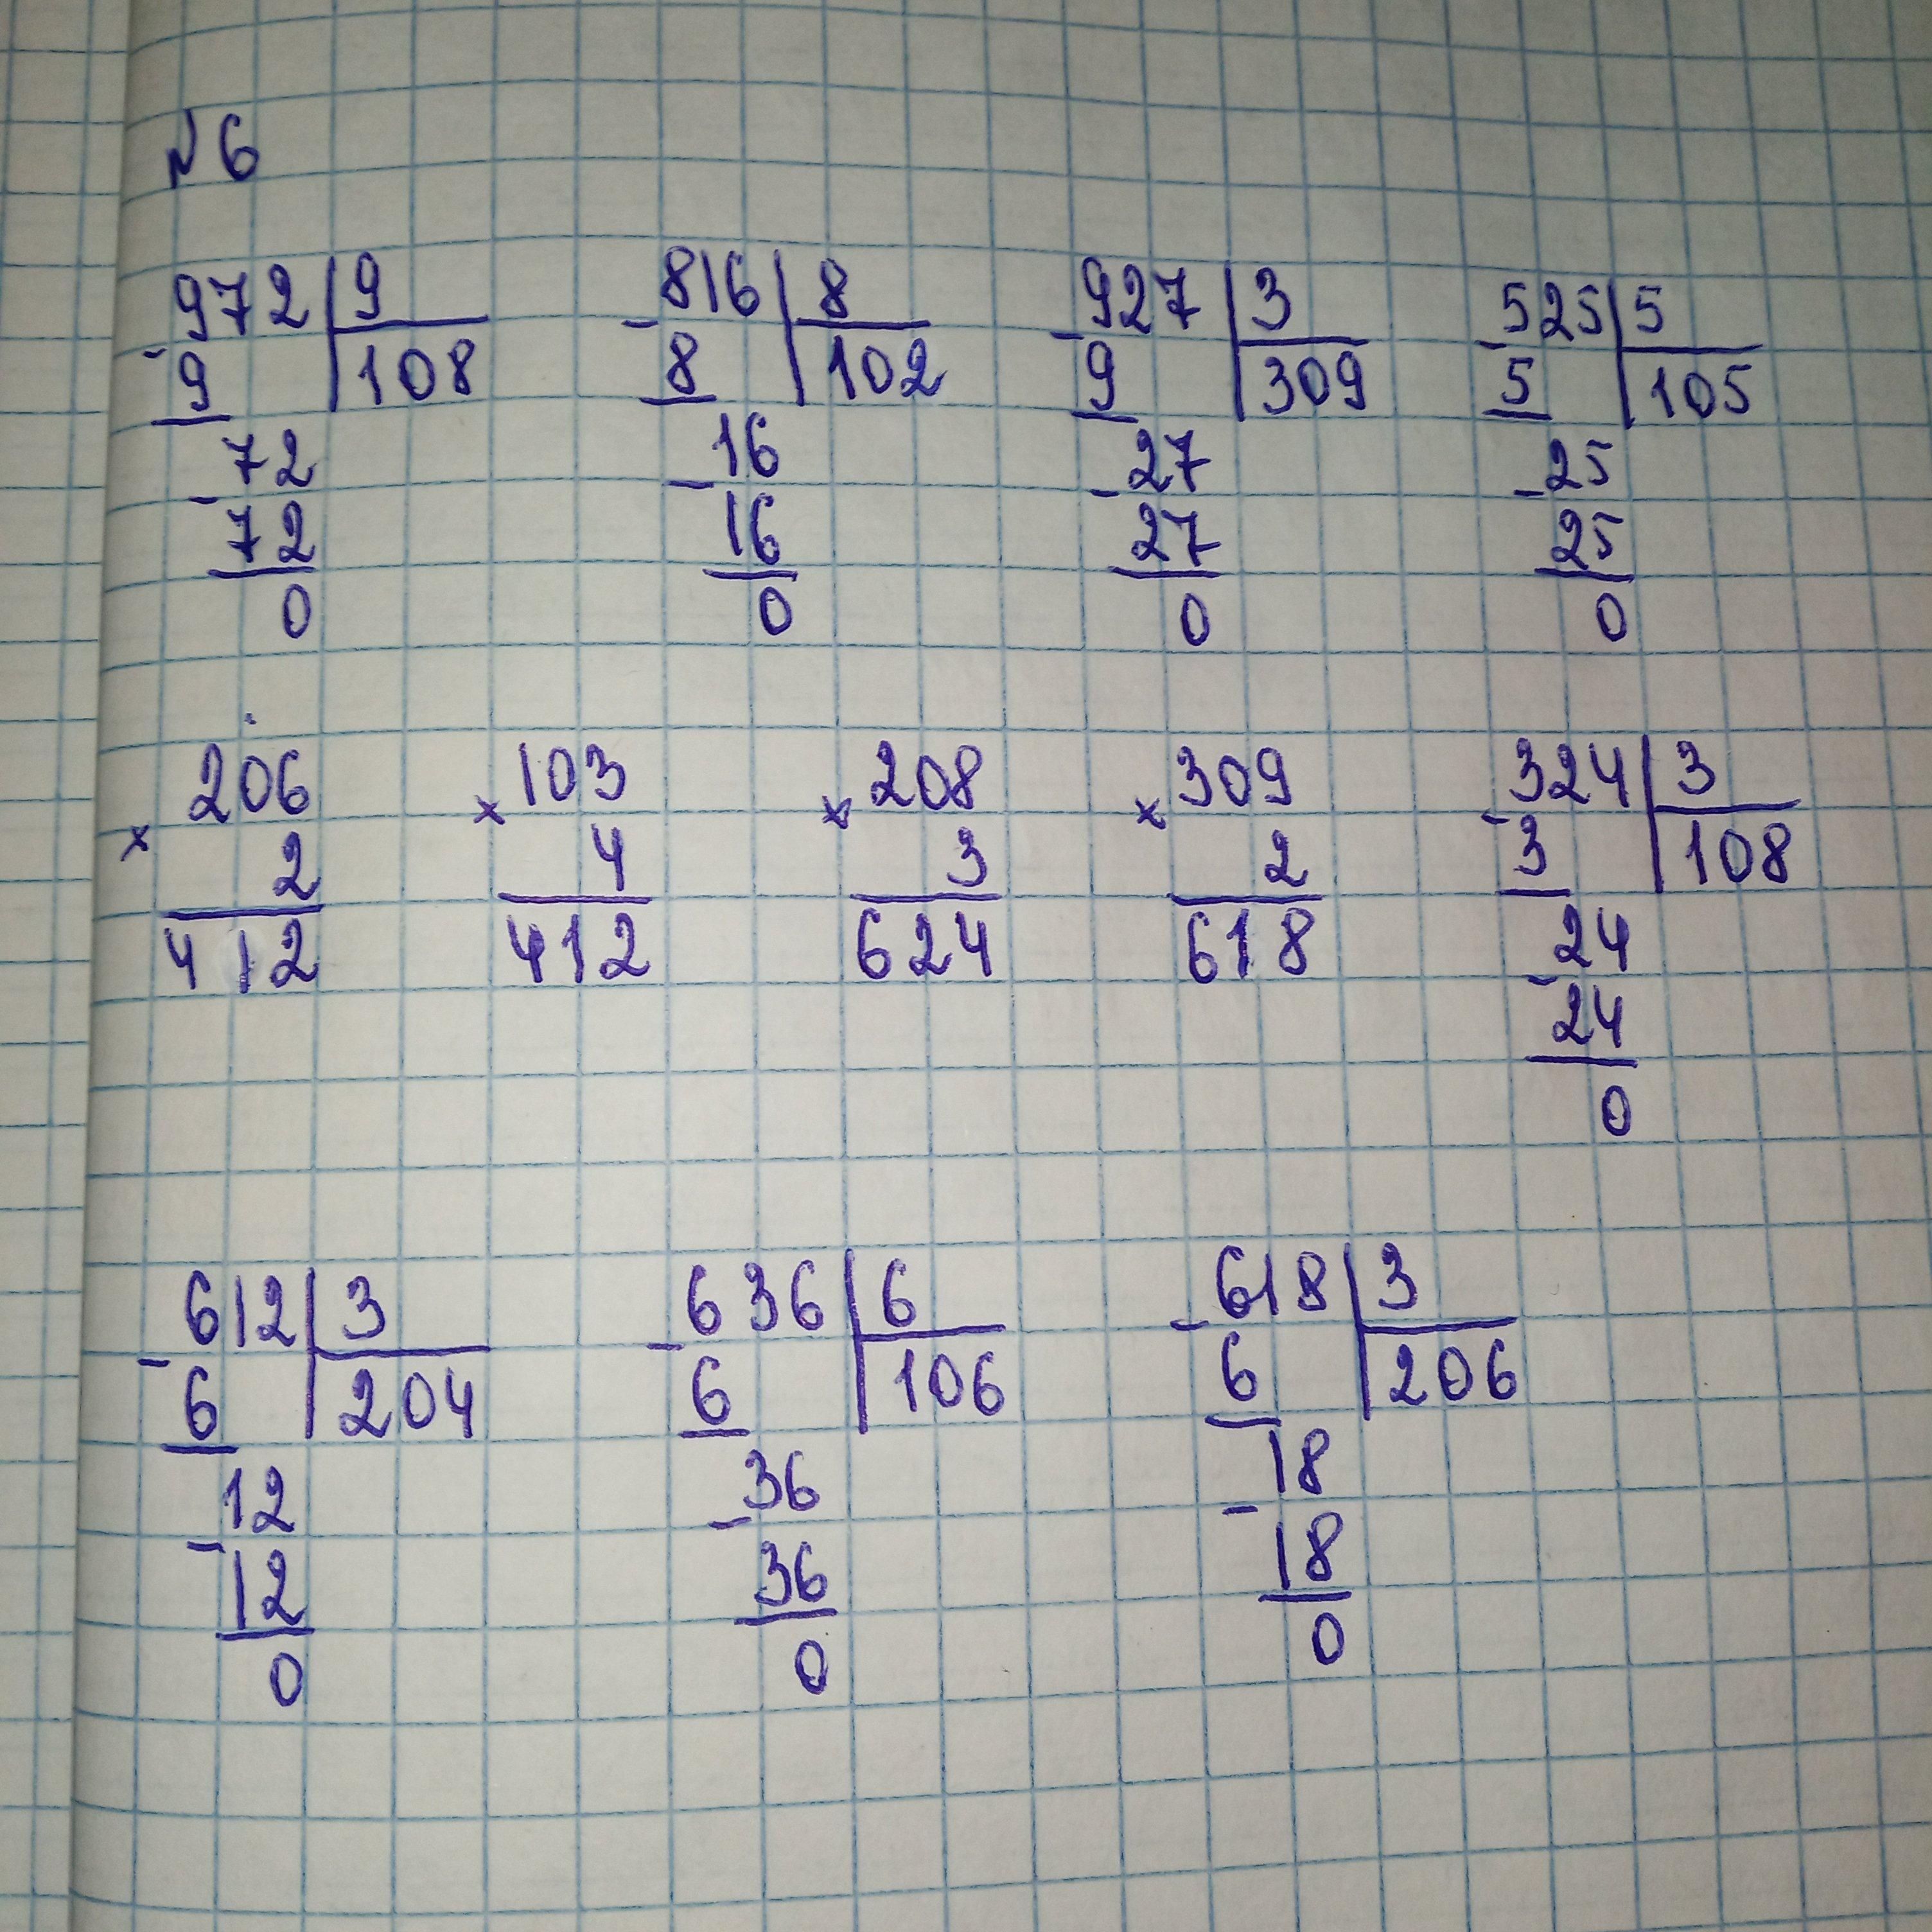 №6
972 9 816 8 927 3 525 5
- 9 108 - 8 102 - 9 309 - 5 105
72 16 27 25
- 72 - 16 - 27 - 25
0 0 0 0
206 103 208 309 324 3
× 2 × 4 × 3 × 2 - 3 108
412 412 624 618 24
- 24
0
612 3 636 6 618 3
- 6 204 - 6 106 - 6 206
12 36 18
- 12 - 36 - 18
0 0 0